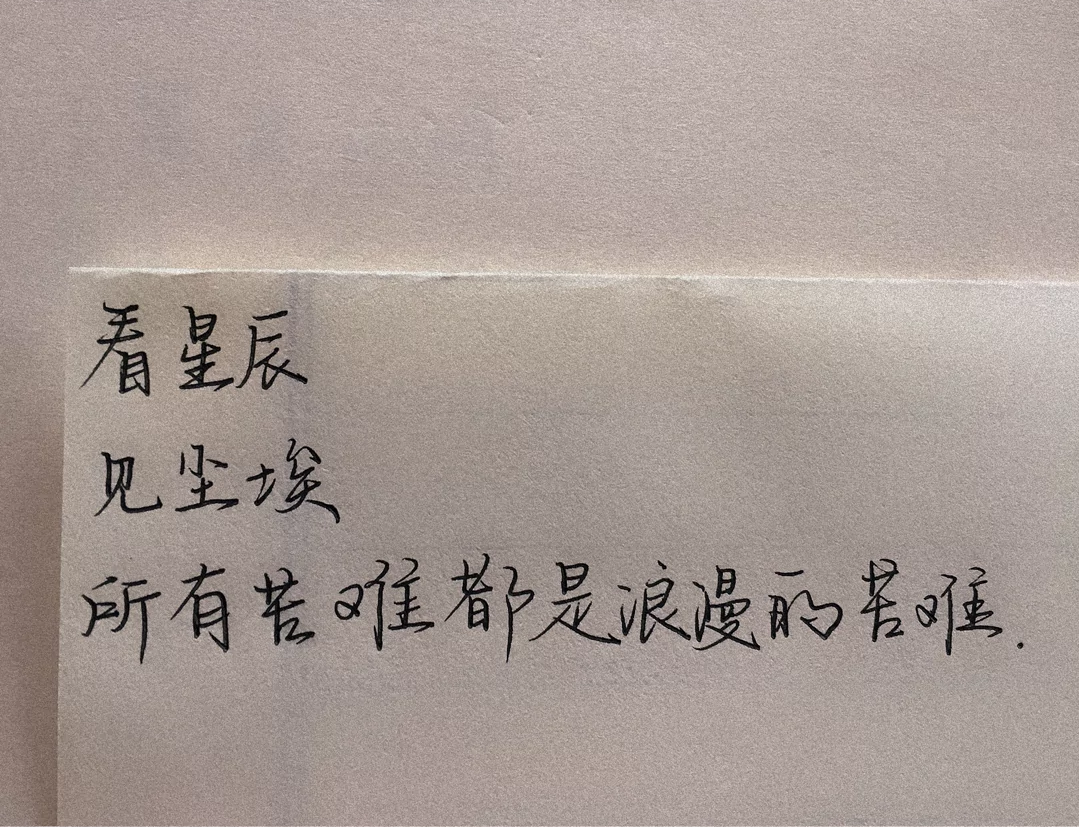 看星辰
见尘埃
所有苦难都是浪漫的苦难.